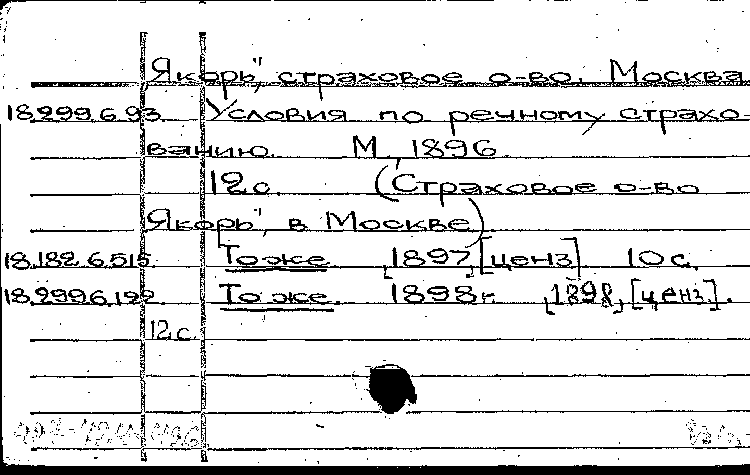 Якорь", страховое о-во. Москва
18.299.6.93. Условия по речному страхо-
ванию. М., 1896.
12 с. (Страховое о-во
Якорь", в Москве).
18.182.6.515. То же. [1897, [ценз] 10 с.
18.299.6.192. То же. 1898 г. [1898, [ценз.].
12 с.